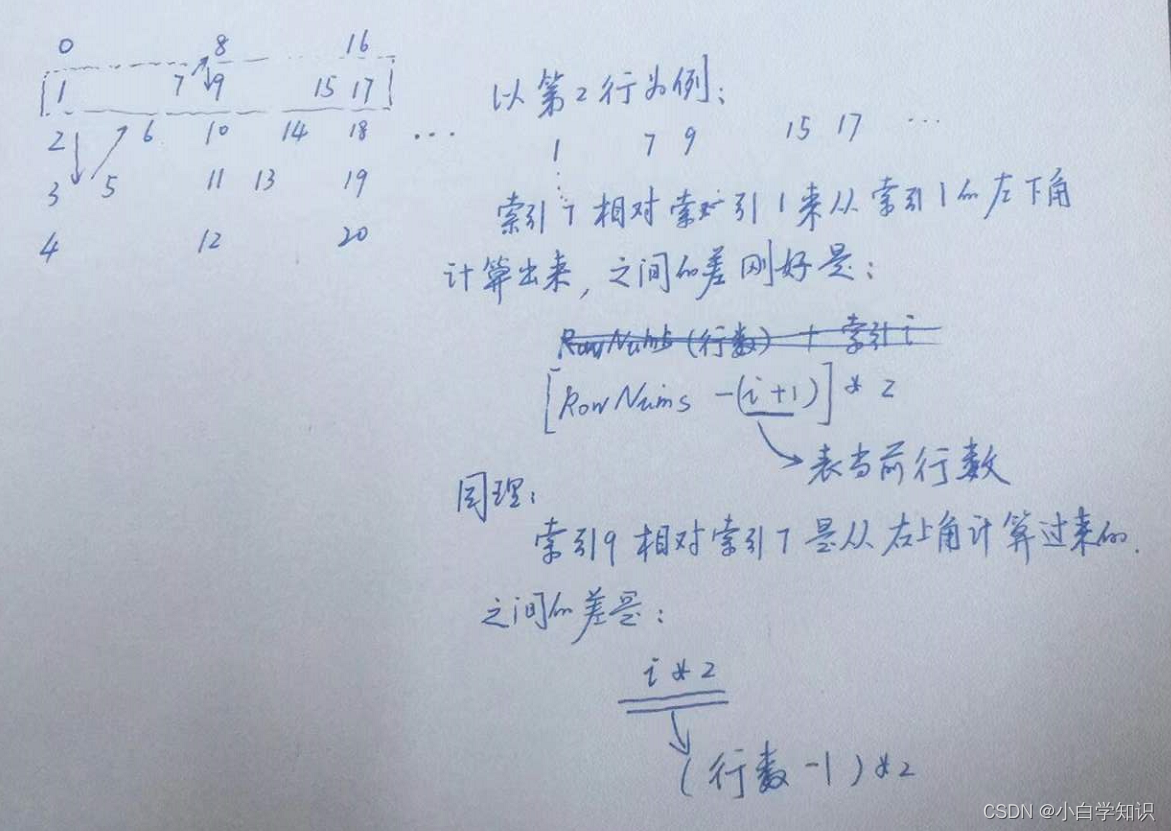 0 8 16
1 7 9 15 17
2 6 10 14 18 ...
3 5 11 13 19
4 12 20
以第2行为例;
1 7 9 15 17 ...
索引7相对索引1来从索引1的左下角
计算出来,之间的差刚好是:
RowNums(行数)+索引i
[RowNums-(i+1)]*2
表当前行数
同理:
索引9相对索引7是从右上角计算过来的.
之间的差是:
i*2
(行数-1)*2
CSDN @小白学知识